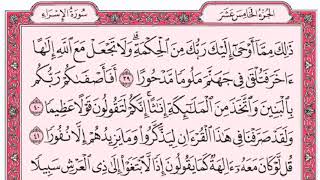 الجزء الخامس عشر
سورة الإسراء
ذَٰلِكَ مِمَّآ أَوْحَىٰٓ إِلَيْكَ رَبُّكَ مِنَ ٱلْحِكْمَةِ ۗ وَلَا تَجْعَلْ مَعَ ٱللَّهِ إِلَٰهًا
ءَاخَرَ فَتُلْقَىٰ فِى جَهَنَّمَ مَلُومًا مَّدْحُورًا ٣٩ أَفَأَصْفَىٰكُمْ رَبُّكُم
بِٱلْبَنِينَ وَٱتَّخَذَ مِنَ ٱلْمَلَٰٓئِكَةِ إِنَٰثًا ۚ إِنَّكُمْ لَتَقُولُونَ قَوْلًا عَظِيمًا ٤٠
وَلَقَدْ صَرَّفْنَا فِى هَٰذَا ٱلْقُرْءَانِ لِيَذَّكَّرُوا۟ وَمَا يَزِيدُهُمْ إِلَّا نُفُورًا ٤١
قُل لَّوْ كَانَ مَعَهُۥٓ ءَالِهَةٌ كَمَا يَقُولُونَ إِذًا لَّٱبْتَغَوْا۟ إِلَىٰ ذِى ٱلْعَرْشِ سَبِيلًا